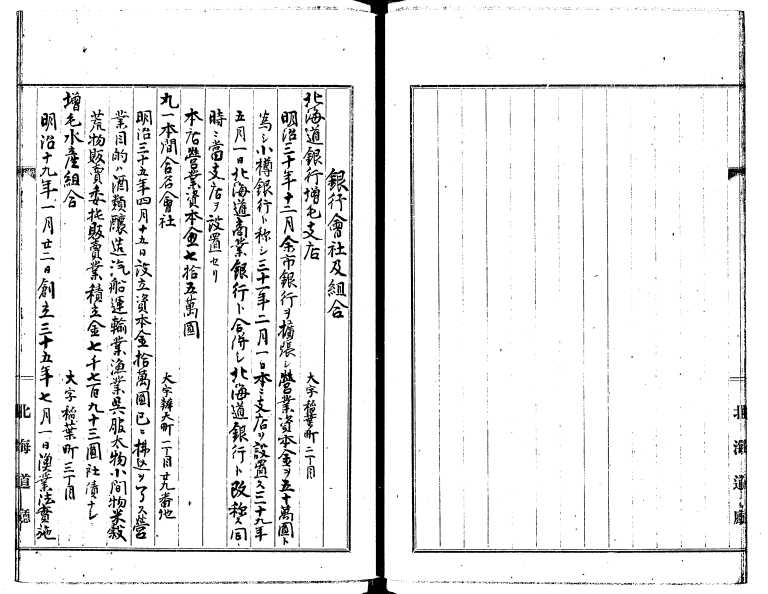 銀行會社及組合
北海道銀行增毛支店　大字稲葉町二丁目
明治三十年十二月余市銀行ヲ擴張シ營業資本金ヲ五十萬圓ト
為シ小樽銀行ト称シ三十一年二月一日本支店ヲ設置ス三十九年
五月一日北海道商業銀行ト合併シ北海道銀行ト改称ス同
時ニ當支店ヲ設置セリ
本店營業資本金七拾五萬圓
九一本間合名會社　大字辨天町一丁目廿九番地
明治三十五年四月十五日設立資本金拾萬圓已ニ拂込ヲ了ス營
業目的ハ酒類釀造汽船運輸業漁業呉服太物小間物米穀
荒物販賣委托販賣業積立金七千七百九十三圓社債ナシ
增毛水産組合　大字稲葉町三丁目
明治十九年一月廿二日創立三十五年七月一日漁業法實施
北海道廳
北海道廳